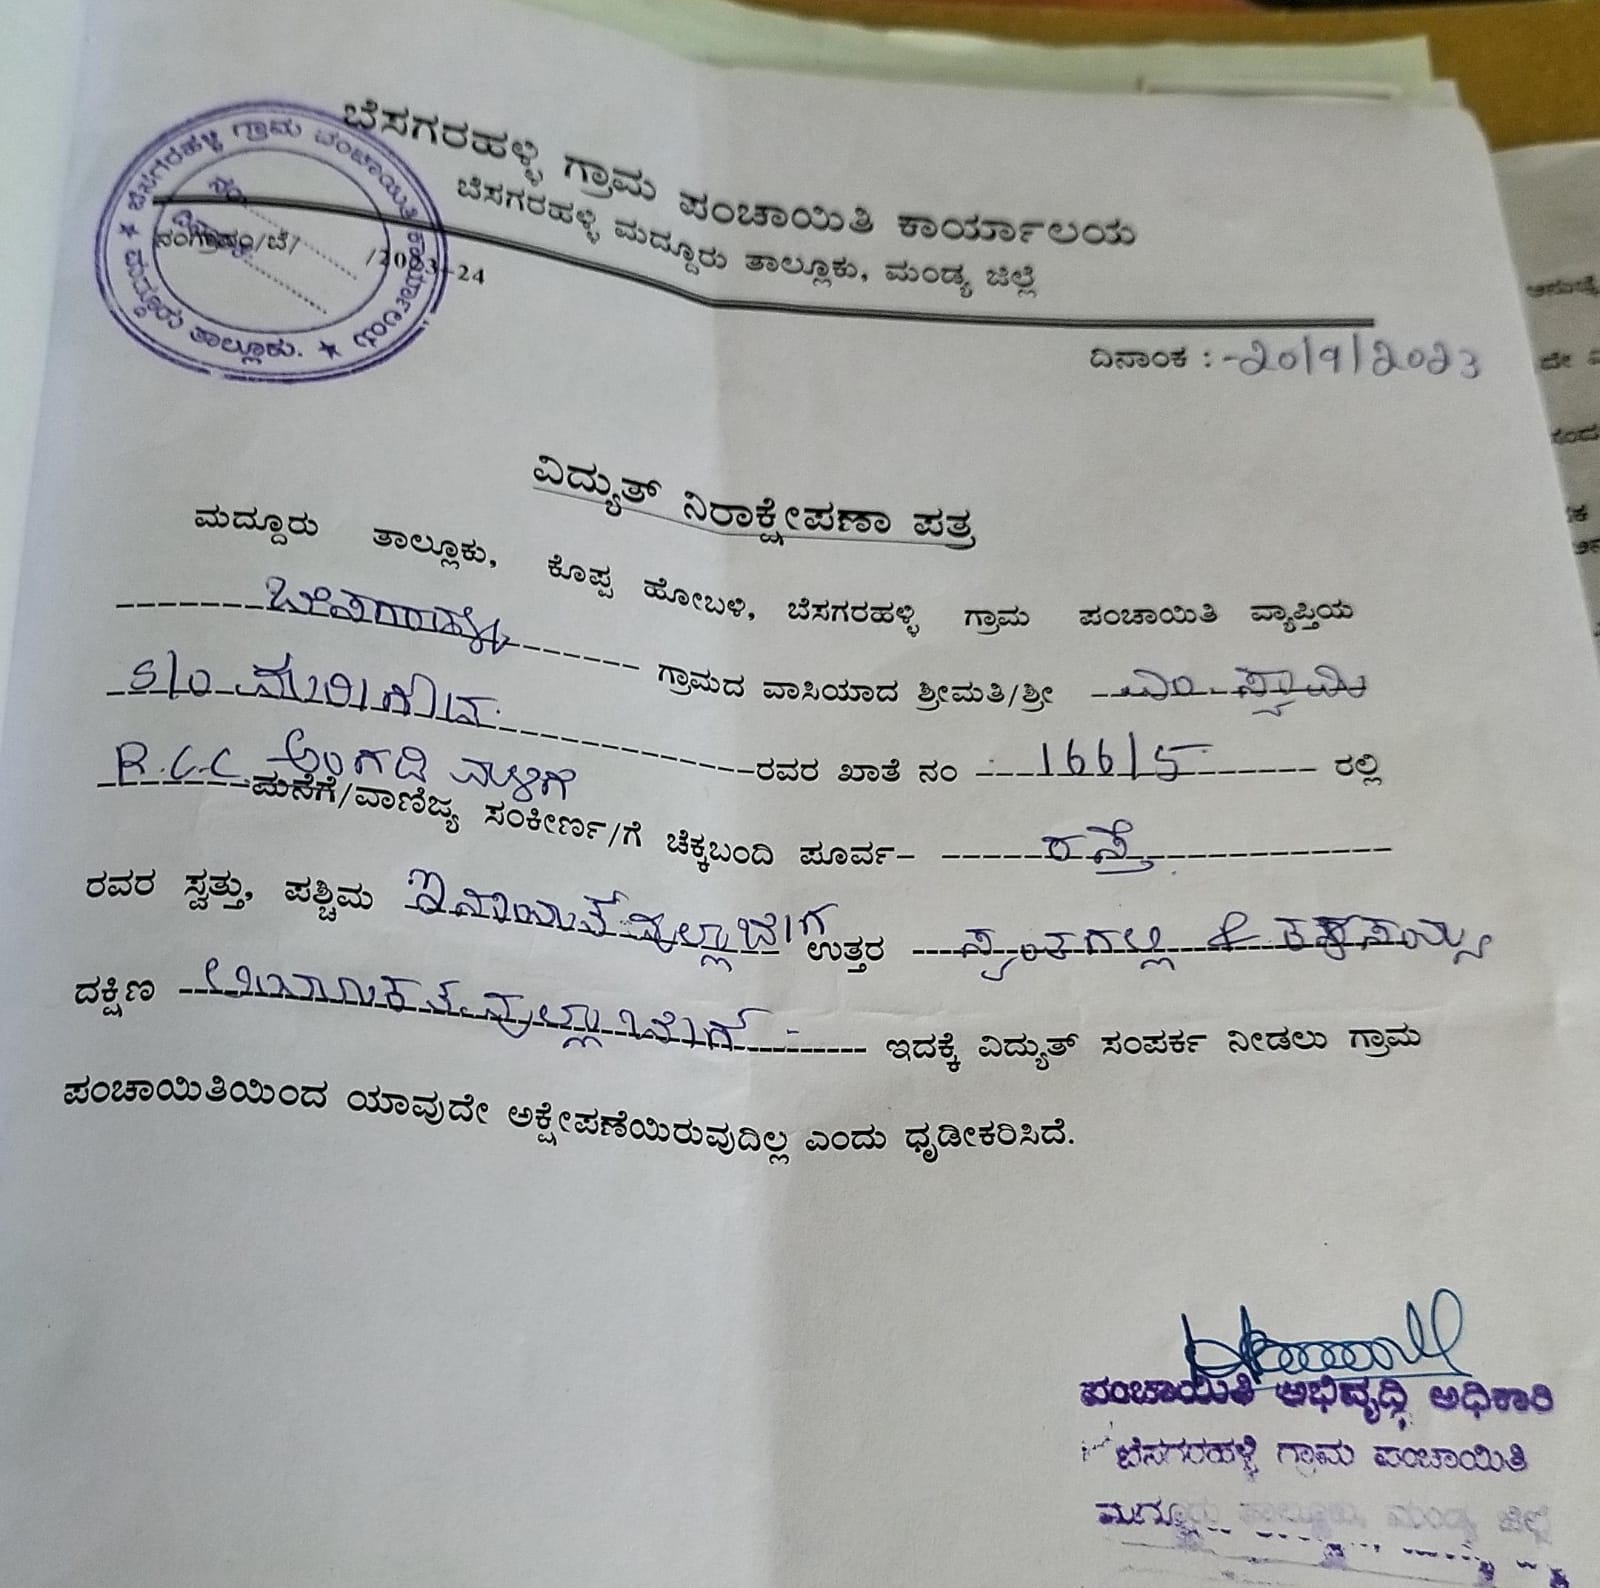 ಬೆಸಗರಹಳ್ಳಿ ಗ್ರಾಮ ಪಂಚಾಯಿತಿ ಕಾರ್ಯಾಲಯ
ಬೆಸಗರಹಳ್ಳಿ ಮದ್ದೂರು ತಾಲ್ಲೂಕು, ಮಂಡ್ಯ ಜಿಲ್ಲೆ
ಬೆಸಗರಹಳ್ಳಿ ಗ್ರಾಮ ಪಂಚಾಯಿತಿ ಕಾರ್ಯಾಲಯ
ಮದ್ದೂರು ತಾಲ್ಲೂಕು.
/2023-24
ದಿನಾಂಕ :-20/9/2023
ವಿದ್ಯುತ್ ನಿರಾಕ್ಷೇಪಣಾ ಪತ್ರ
ಮದ್ದೂರು ತಾಲ್ಲೂಕು, ಕೊಪ್ಪ ಹೋಬಳಿ, ಬೆಸಗರಹಳ್ಳಿ ಗ್ರಾಮ ಪಂಚಾಯಿತಿ ವ್ಯಾಪ್ತಿಯ
ಬೆಸಗರಹಳ್ಳಿ ಗ್ರಾಮದ ವಾಸಿಯಾದ ಶ್ರೀಮತಿ/ಶ್ರೀ ಎಂ. ಸ್ವಾಮಿ
S/o ರವರ ಖಾತೆ ನಂ 166/5 ರಲ್ಲಿ
R.C.C ಅಂಗಡಿ ಮಳಿಗೆ ಮನೆಗೆ/ವಾಣಿಜ್ಯ ಸಂಕೀರ್ಣ/ಗೆ ಚೆಕ್ಕಬಂದಿ ಪೂರ್ವ- ರಸ್ತೆ
ರವರ ಸ್ವತ್ತು, ಪಶ್ಚಿಮ ಉತ್ತರ
ದಕ್ಷಿಣ ಇದಕ್ಕೆ ವಿದ್ಯುತ್ ಸಂಪರ್ಕ ನೀಡಲು ಗ್ರಾಮ
ಪಂಚಾಯಿತಿಯಿಂದ ಯಾವುದೇ ಅಕ್ಷೇಪಣೆಯಿರುವುದಿಲ್ಲ ಎಂದು ಧೃಡೀಕರಿಸಿದೆ.
ಪಂಚಾಯಿತಿ ಅಭಿವೃದ್ಧಿ ಅಧಿಕಾರಿ
ಬೆಸಗರಹಳ್ಳಿ ಗ್ರಾಮ ಪಂಚಾಯಿತಿ
ಮದ್ದೂರು ತಾಲ್ಲೂಕು, ಮಂಡ್ಯ ಜಿಲ್ಲೆ